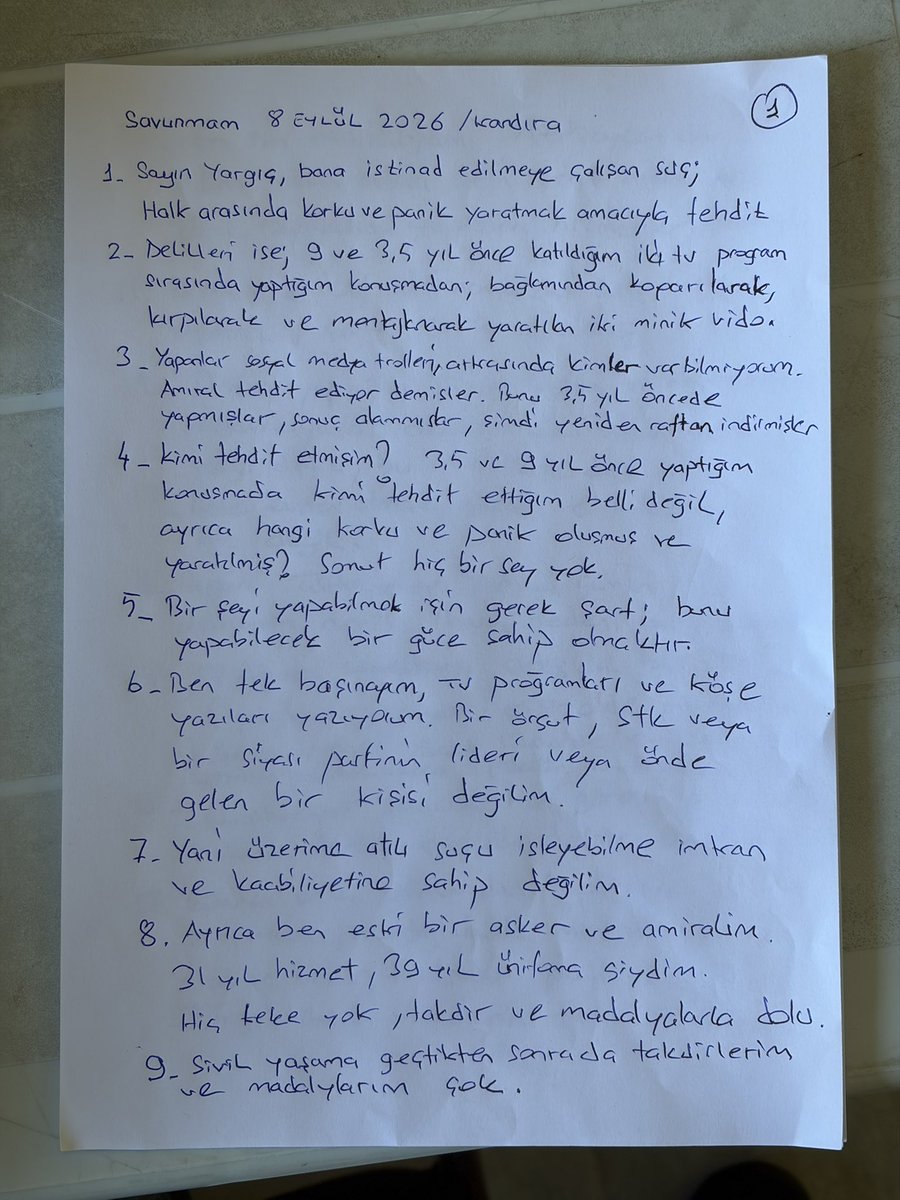 1
Savunmam 8 EYLÜL 2026 /Kandıra
1- Sayın Yargıç, bana istinad edilmeye çalışan suç;
Halk arasında korku ve panik yaratmak amacıyla tehdit
2- Delilleri ise; 9 ve 3,5 yıl önce katıldığım iki tv program
sırasında yaptığım konuşmadan; bağlamından koparılarak,
kırpılarak ve montajlanarak yaratılan iki minik vido.
3- Yapanlar sosyal medya trolleri, arkasında kimler var bilmiyorum.
Amiral tehdit ediyor demişler. Bunu 3,5 yıl öncede
yapmışlar, sonuç alamamışlar, şimdi yeniden raftan indirmişler
4- Kimi tehdit etmişim? 3,5 ve 9 yıl önce yaptığım
konuşmada kimi tehdit ettiğim belli değil,
ayrıca hangi korku ve panik oluşmuş ve
yaratılmış? Somut hiç bir şey yok.
5- Bir şeyi yapabilmek için gerek şart; bunu
yapabilecek bir güce sahip olmaktır.
6- Ben tek başınayım, TV proğramları ve köşe
yazıları yazıyorum. Bir örgüt, Stk veya
bir siyasi partinin lideri veya önde
gelen bir kişisi değilim.
7- Yani üzerime atılı suçu işleyebilme imkan
ve kaabiliyetine sahip değilim.
8. Ayrıca ben eski bir asker ve amiralim.
31 yıl hizmet, 39 yıl ünifama giydim.
Hiç leke yok, takdir ve madalyalarla dolu.
9- Sivil yaşama geçtikten sonrada takdirlerim
ve madalylarım çok.